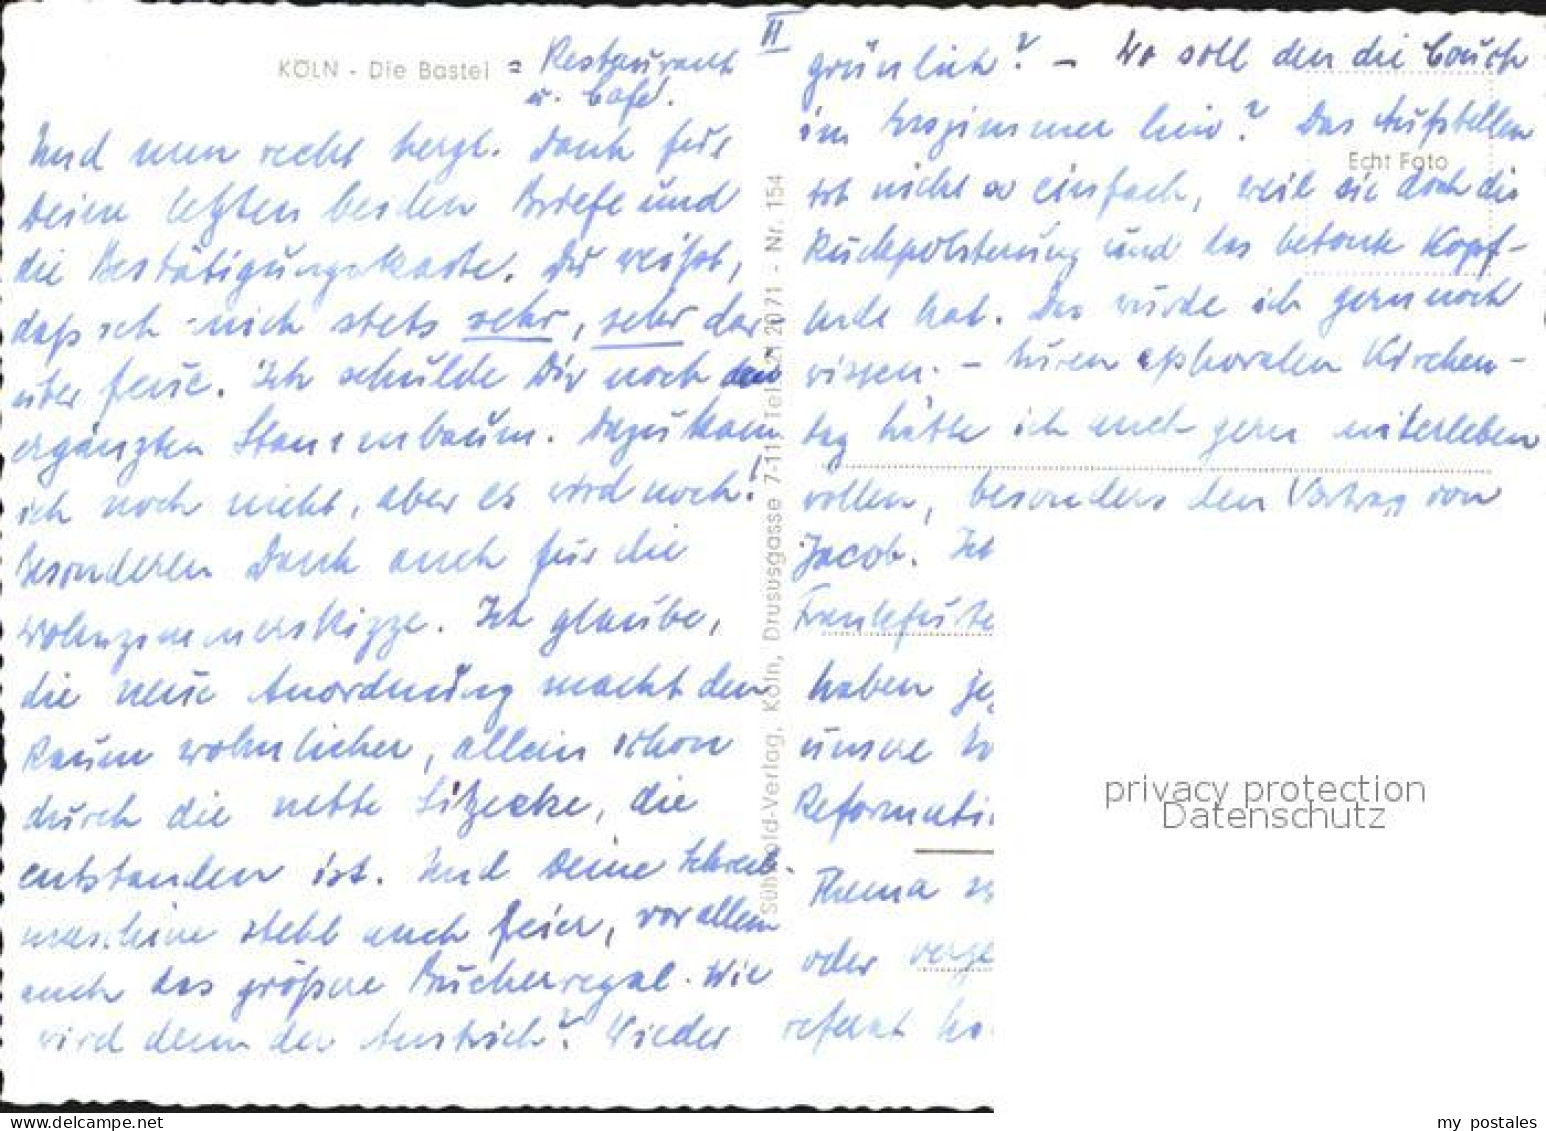 II
KÖLN - Die Bastei = Restaurant
u. Café.
Und nun recht herzl. Dank für
Deine letzten beiden Briefe und
die Bestätigungskarte. Du weißt,
daß ich mich stets sehr, sehr dar-
über freue. Ich schulde Dir noch den
ergänzten Stammbaum. Dazu kam
ich noch nicht, aber es wird noch!
Besonderen Dank auch für die
Wohnzimmerskizze. Ich glaube,
die neue Anordnung macht den
Raum wohnlicher, allein schon
durch die nette Sitzecke, die
entstanden ist. Und Deine Schreib-
maschine steht auch feier, vor allem
auch das größere Bücherregal. Wie
wird denn der Anstrich? Wieder
Sühwold-Verlag, Köln, Drususgasse 7-11, Tel. 21 20 71 - Nr. 154
grünlich? - Wo soll den die Couch
im hin? Das Aufstellen
ist nicht so einfach, weil sie doch die
Rückpolsterung und das betonte Kopf-
ende hat. Das würde ich gern noch
wissen. - Euren ephoralen Kirchen-
tag hätte ich auch gern miterleben
wollen, besonders den Vortrag von
Jacob. Ich
Frankfurte
haben je
unsere
Reformati
Thema
oder verge
referat
Echt Foto
privacy protection
Datenschutz
delcampe.net
my_postales